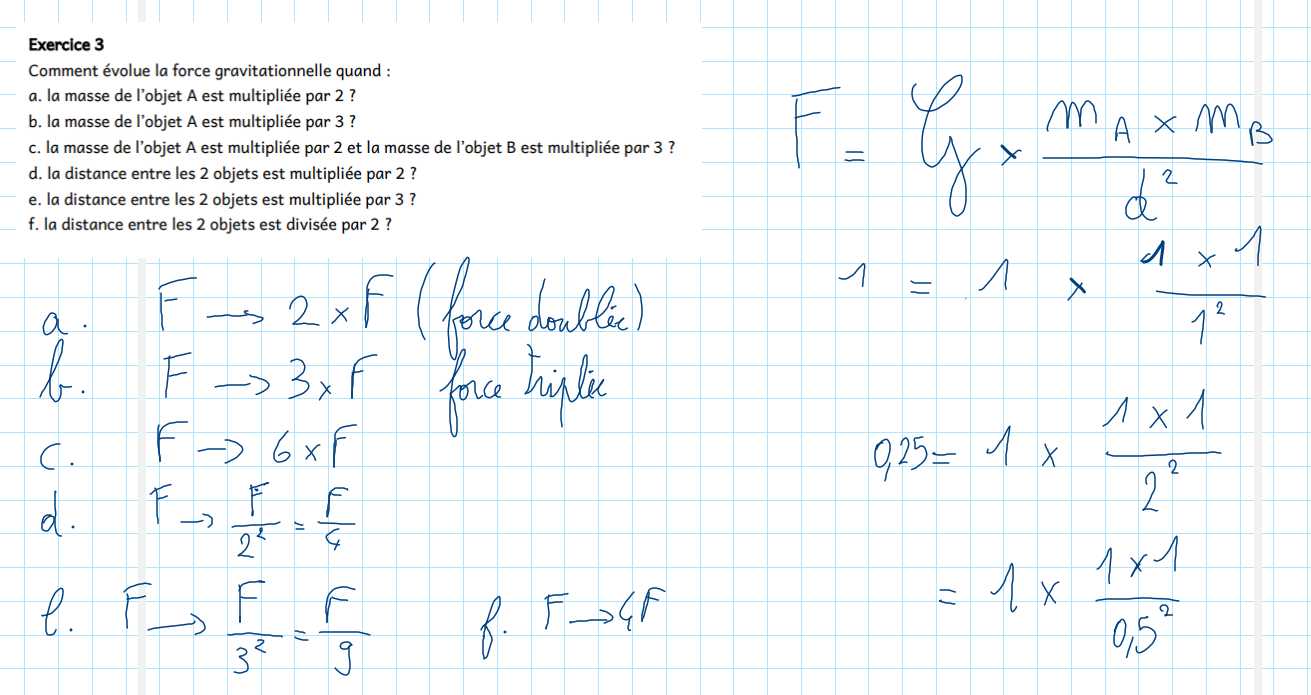 Exercice 3
Comment évolue la force gravitationnelle quand :
a. la masse de l'objet A est multipliée par 2 ?
b. la masse de l'objet A est multipliée par 3 ?
c. la masse de l'objet A est multipliée par 2 et la masse de l'objet B est multipliée par 3 ?
d. la distance entre les 2 objets est multipliée par 2 ?
e. la distance entre les 2 objets est multipliée par 3 ?
f. la distance entre les 2 objets est divisée par 2 ?
a. F → 2 × F (force doublée)
b. F → 3 × F force triplée
c. F → 6 × F
d. F → F/2² = F/4
e. F → F/3² = F/9
f. F → 4F
F = G × (m_A × m_B)/d²
1 = 1 × (1 × 1)/1²
0,25 = 1 × (1 × 1)/2²
= 1 × (1 × 1)/0,5²